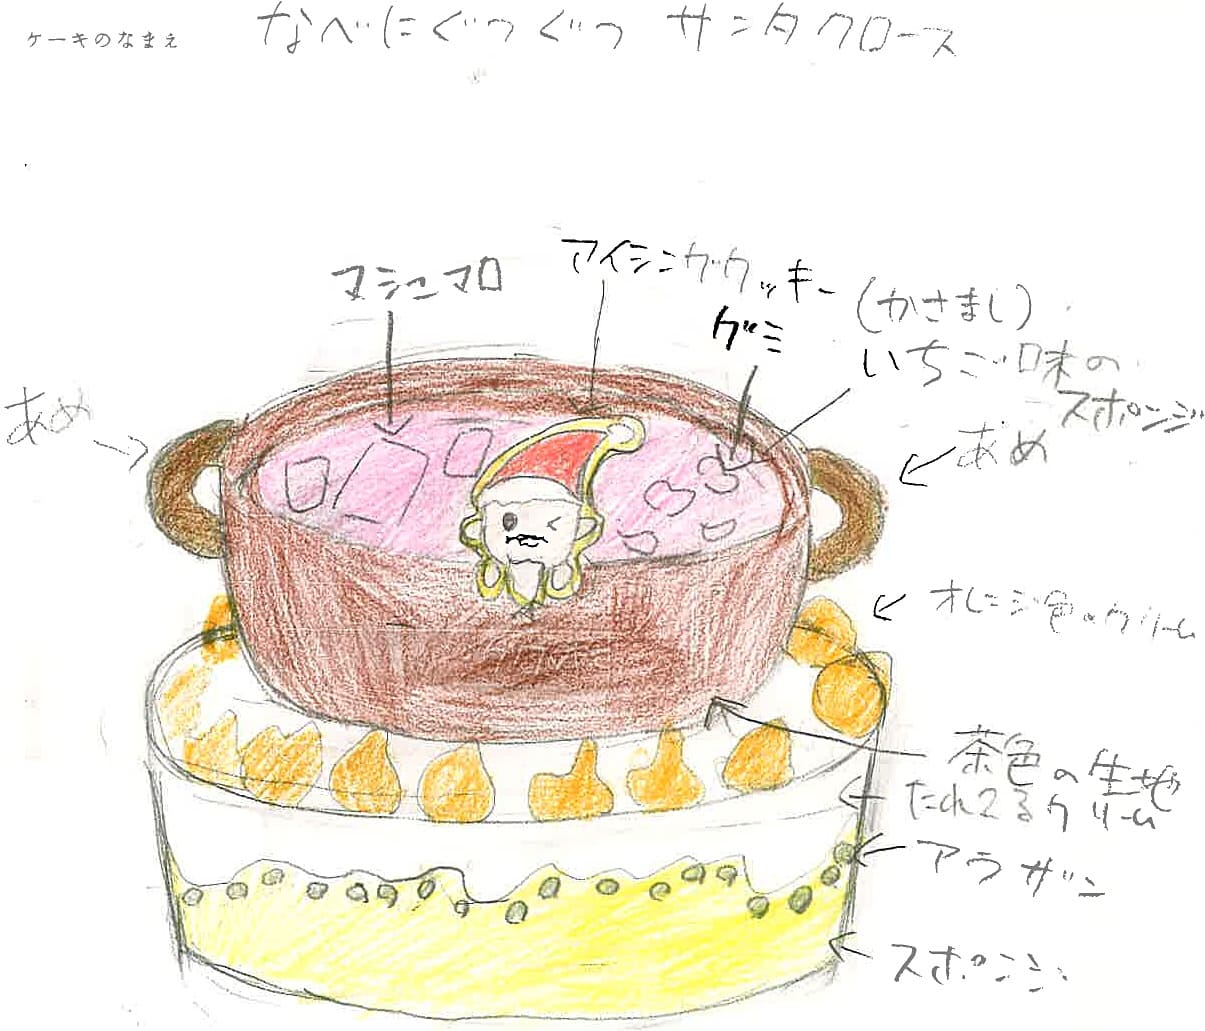 ケーキのなまえ
なべにぐつぐつ サンタクロース
マシュマロ
アイシングクッキー
グミ
(かさまし)
いちご味の
スポンジ
あめ
あめ
オレンジ色のクリーム
茶色の生地
たれてるクリーム
アラザン
スポンジ